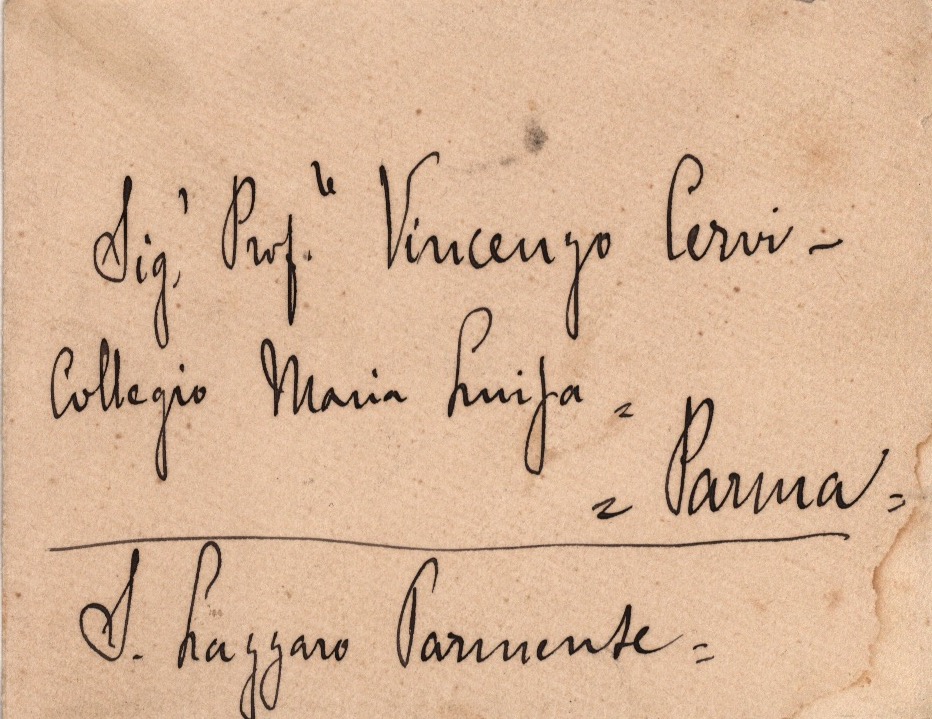 Sig.r Prof.re Vincenzo Cervi -
Collegio Maria Luisa =
= Parma =
S. Lazzaro Parmense =